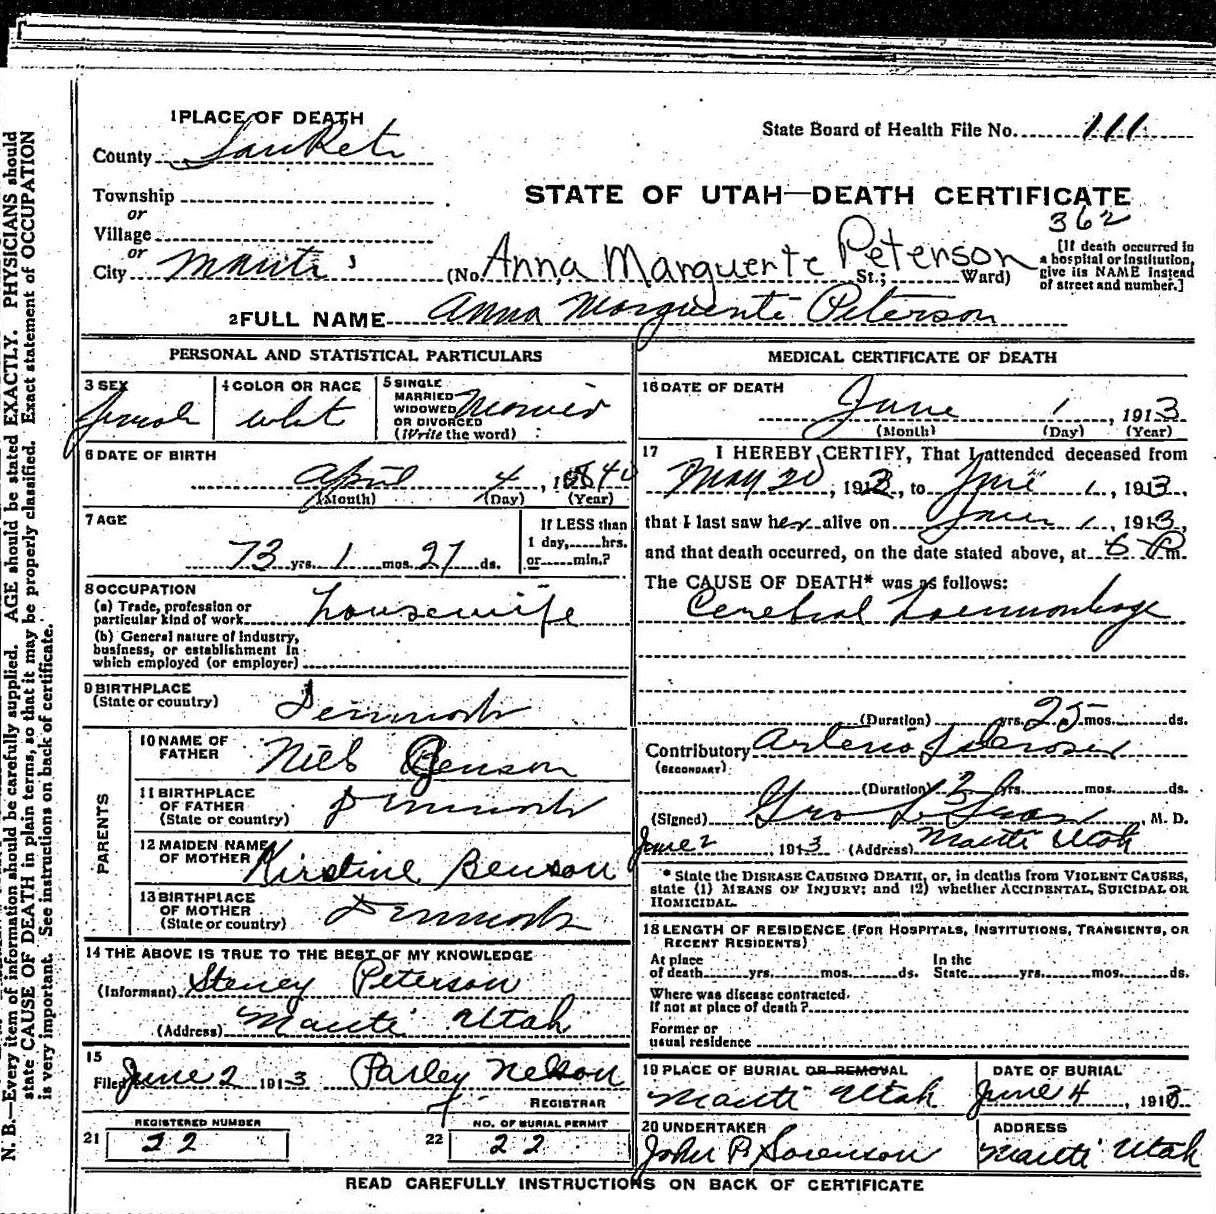 1 PLACE OF DEATH
County SanPete
State Board of Health File No. 111
Township
or
Village
or
City Manti
STATE OF UTAH—DEATH CERTIFICATE
362
(No. Anna Marguente Peterson St.; Ward)
[If death occurred in
a hospital or institution,
give its NAME instead
of street and number.]
2 FULL NAME Anna Marguente Peterson
PERSONAL AND STATISTICAL PARTICULARS
3 SEX
Female
4 COLOR OR RACE
whit
5 SINGLE
MARRIED
WIDOWED
OR DIVORCED
(Write the word)
Married
6 DATE OF BIRTH
April 4, 1840
(Month) (Day) (Year)
7 AGE
73 yrs. 1 mos. 27 ds.
If LESS than
1 day, hrs.
or min.?
8 OCCUPATION
(a) Trade, profession or
particular kind of work housewife
(b) General nature of industry,
business, or establishment in
which employed (or employer)
9 BIRTHPLACE
(State or country) Denmark
PARENTS
10 NAME OF
FATHER Niels Benson
11 BIRTHPLACE
OF FATHER
(State or country) Denmark
12 MAIDEN NAME
OF MOTHER Kirstine Benson
13 BIRTHPLACE
OF MOTHER
(State or country) Denmark
14 THE ABOVE IS TRUE TO THE BEST OF MY KNOWLEDGE
(Informant) Peterson
(Address) Manti Utah
15
Filed June 2 1913 Parley Nelson
REGISTRAR
21 REGISTERED NUMBER
22
22 NO. OF BURIAL PERMIT
22
MEDICAL CERTIFICATE OF DEATH
16 DATE OF DEATH
June 1, 1913
(Month) (Day) (Year)
17 I HEREBY CERTIFY, That I attended deceased from
May 20, 1913, to June 1, 1913,
that I last saw her alive on June 1, 1913,
and that death occurred, on the date stated above, at 6 P m.
The CAUSE OF DEATH* was as follows:
Cerebral haemorrhage
(Duration) yrs. 25 mos. ds.
Contributory Arterio Sclerosis
(SECONDARY)
(Duration) 3 yrs. mos. ds.
(Signed) Geo L , M. D.
June 2, 1913 (Address) Manti Utah
* State the DISEASE CAUSING DEATH, or, in deaths from VIOLENT CAUSES,
state (1) MEANS OF INJURY; and (2) whether ACCIDENTAL, SUICIDAL OR
HOMICIDAL.
18 LENGTH OF RESIDENCE (FOR HOSPITALS, INSTITUTIONS, TRANSIENTS, OR
RECENT RESIDENTS)
At place
of death yrs. mos. ds.
In the
State yrs. mos. ds.
Where was disease contracted.
If not at place of death?
Former or
usual residence
19 PLACE OF BURIAL OR REMOVAL
Manti Utah
DATE OF BURIAL
June 4, 1913
20 UNDERTAKER
John P Sorenson
ADDRESS
Manti Utah
READ CAREFULLY INSTRUCTIONS ON BACK OF CERTIFICATE
N. B.—Every item of information should be carefully supplied. AGE should be stated EXACTLY. PHYSICIANS should
state CAUSE OF DEATH in plain terms, so that it may be properly classified. Exact statement of OCCUPATION
is very important. See instructions on back of certificate.